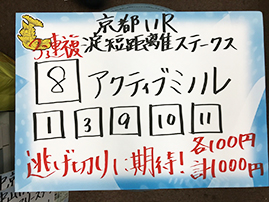 京都11R
3連複 淀短距離ステークス
8 アクティブミノル
1 3 9 10 11
逃げ切りに期待! 各100円
計1000円